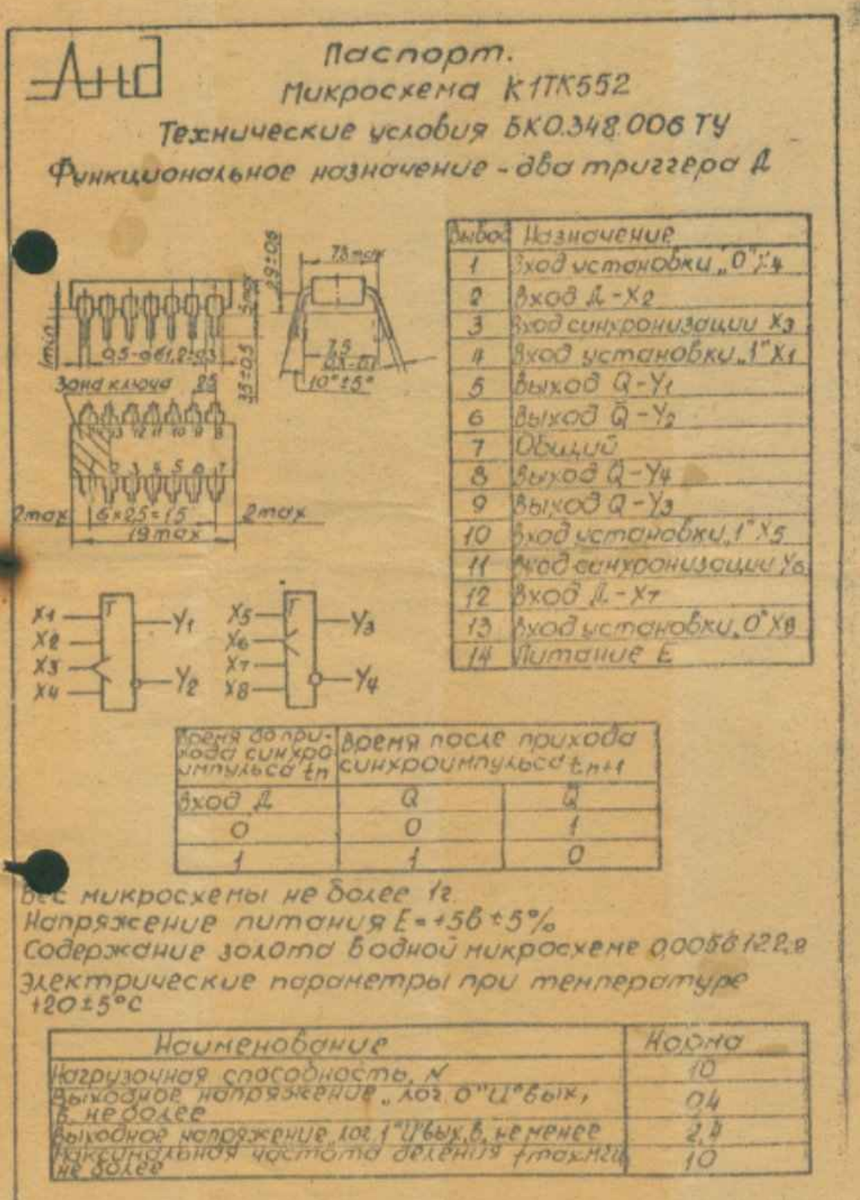 Лнд
Паспорт.
Микросхема К1ТК552
Технические условия БК0.348.006 ТУ
Функциональное назначение - два триггера Д
7,5 max
2,9±0,6
5 max
1 min
0,5-0,6
3,5±0,5
7,5
10°±5°
Зона ключа
2,5
14 13 12 11 10 9 8
1 2 3 4 5 6 7
2max
6×2,5=15
2max
19max
Вывод Назначение
1 Вход установки „0" X4
2 Вход Д-X2
3 Вход синхронизации X3
4 Вход установки „1" X1
5 Выход Q-Y1
6 Выход Q̄-Y2
7 Общий
8 Выход Q̄-Y4
9 Выход Q-Y3
10 Вход установки „1" X5
11 Вход синхронизации Y6
12 Вход Д-X7
13 Вход установки „0" X8
14 Питание Е
X1 T Y1
X2
X3
X4 Y2
X5 T Y3
X6
X7
X8 Y4
Время до при-
хода синхро
импульса tn
Время после прихода
синхроимпульса tn+1
Вход Д Q Q̄
0 0 1
1 1 0
Вес микросхемы не более 1г.
Напряжение питания Е=+5в±5%
Содержание золота в одной микросхеме
Электрические параметры при температуре
+20±5°С
Наименование Норма
Нагрузочная способность, N 10
Выходное напряжение „лог. 0" U°вых,
в, не более 0,4
Выходное напряжение лог. 1" U'вых, в, не менее 2,4
Максимальная частота деления fmax, мгц
не более 10